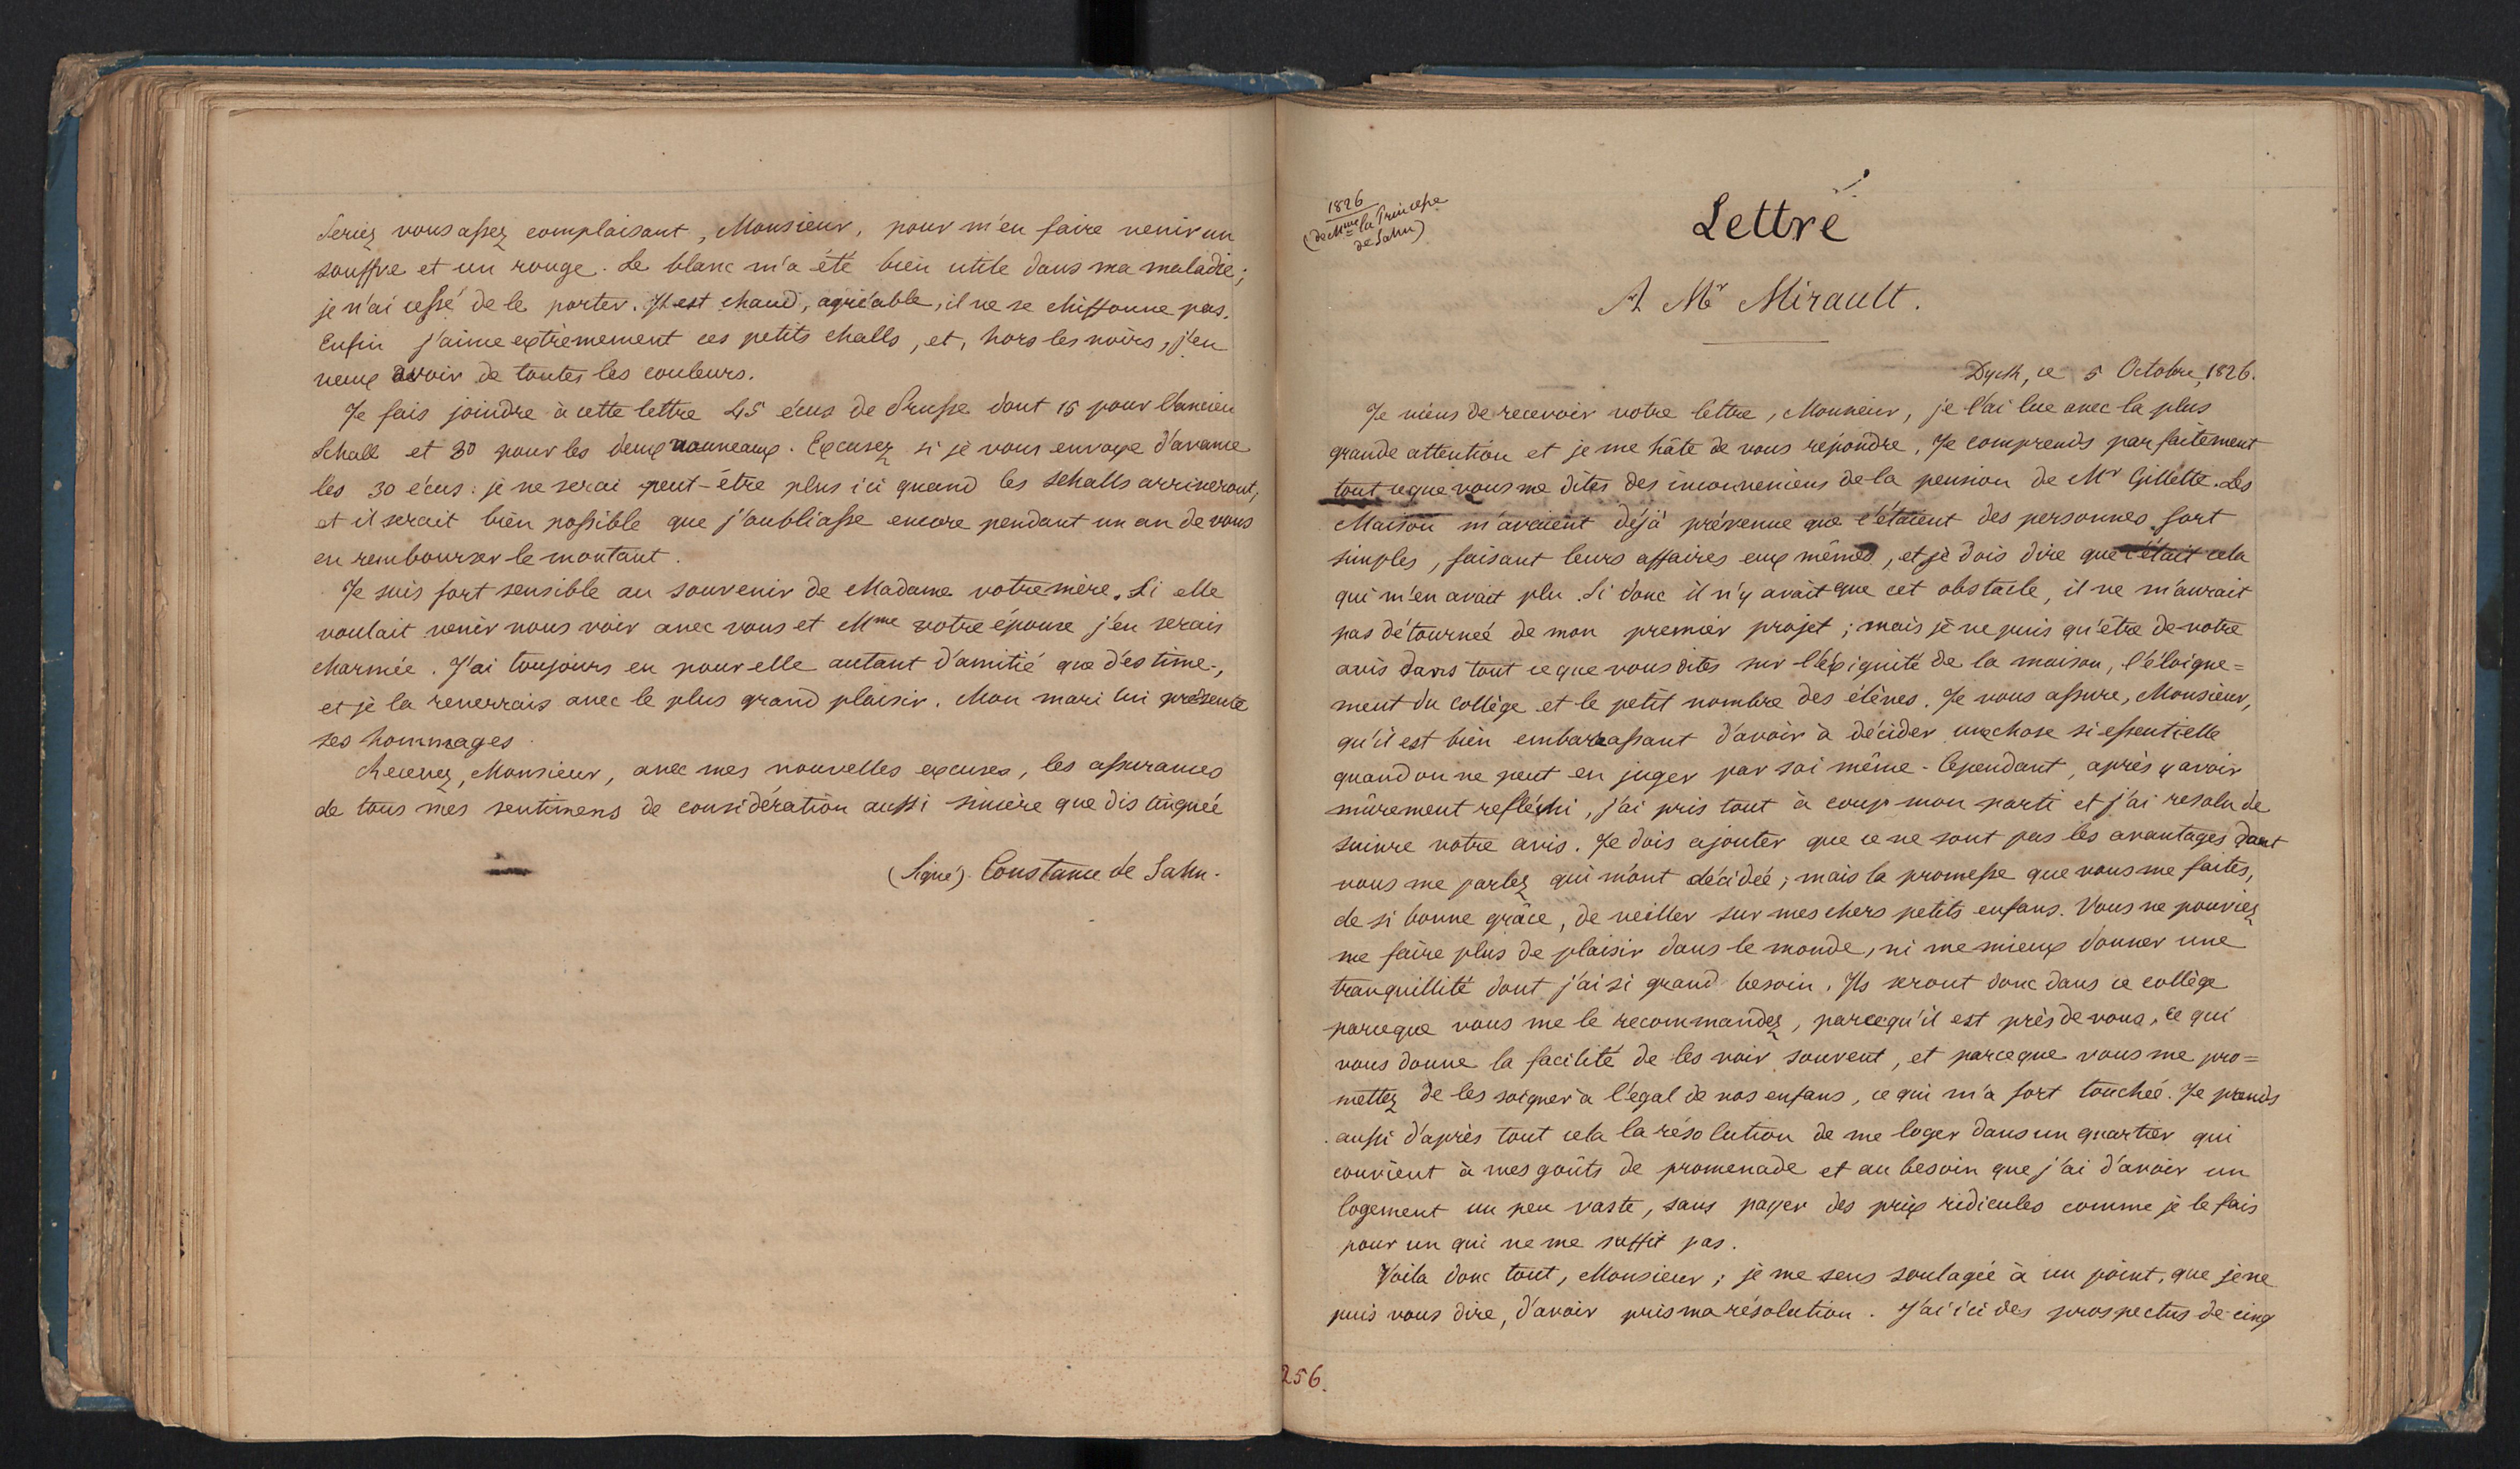 Seriez vous assez complaisant, Monsieur, pour m'en faire venir un
souffre et un rouge. Le blanc m'a été bien utile dans ma maladie;
je n'ai cessé de le porter. Il est chaud, agréable, il ne se chiffonne pas.
Enfin j'aime extrêmement ces petits challs, et, hors les noirs, j'en
veux avoir de toutes les couleurs.
Je fais joindre à cette lettre 45 écus de Prusse dont 15 pour l'ancien
Schall et 30 pour les deux nouveaux. Excusez si je vous envoye d'avance
les 30 écus: je ne serai peut-être plus ici quand les schalls arriveront,
et il serait bien possible que j'oubliasse encore pendant un an de vous
en rembourser le montant.
Je suis fort sensible au souvenir de Madame votre mère. Si elle
voulait venir nous voir avec vous et Mme votre épouse j'en serais
charmée. J'ai toujours eu pour elle autant d'amitié que d'estime,
et je la reverrais avec le plus grand plaisir. Mon mari lui présente
ses hommages.
Recevez, Monsieur, avec mes nouvelles excuses, les assurances
de tous mes sentimens de considération aussi sincère que distinguée
(Signé) Constance de Salm.
1826
(de Mme la Princesse
de Salm)
Lettre
A Mr Mirault.
Dyck, ce 5 Octobre, 1826.
Je viens de recevoir votre lettre, Monsieur, je l'ai lue avec la plus
grande attention et je me hâte de vous repondre. Je comprends parfaitement
tout ce que vous me dites des inconveniens de la pension de Mr Gillette. Les
Maison m'avaient déjà prévenue que c'étaient des personnes fort
simples, faisant leurs affaires eux mêmes, et je dois dire que c'était cela
qui m'en avait plu. Si donc il n'y avait que cet obstacle, il ne m'aurait
pas détournée de mon premier projet; mais je ne puis qu'être de votre
avis dans tout ce que vous dites sur l'éxiguité de la maison, l'éloigne=
ment du collège et le petit nombre des élèves. Je vous assure, Monsieur,
qu'il est bien embarrassant d'avoir à décider une chose si essentielle
quand on ne peut en juger par soi même. Cependant, après y avoir
mûrement refléchi, j'ai pris tout à coup mon parti et j'ai resolu de
suivre votre avis. Je dois ajouter que ce ne sont pas les avantages dont
vous me parlez qui m'ont décidée; mais la promesse que vous me faites,
de si bonne grâce, de veiller sur mes chers petits enfans. Vous ne pouviez
me faire plus de plaisir dans le monde, ni me mieux donner une
tranquillité dont j'ai si grand besoin. Ils seront donc dans ce collège
parceque vous me le recommandez, parcequ'il est près de vous, ce qui
vous donne la facilité de les voir souvent, et parceque vous me pro=
mettez de les soigner à l'égal de vos enfans, ce qui m'a fort touchée. Je prends
aussi d'après tout cela la résolution de me loger dans un quartier qui
convient à mes goûts de promenade et au besoin que j'ai d'avoir un
logement un peu vaste, sans payer des prix ridicules comme je le fais
pour un qui ne me suffit pas.
Voila donc tout, Monsieur; je me sens soulagée à un point, que je ne
puis vous dire, d'avoir pris ma résolution. J'ai ici des prospectus de cinq
256.